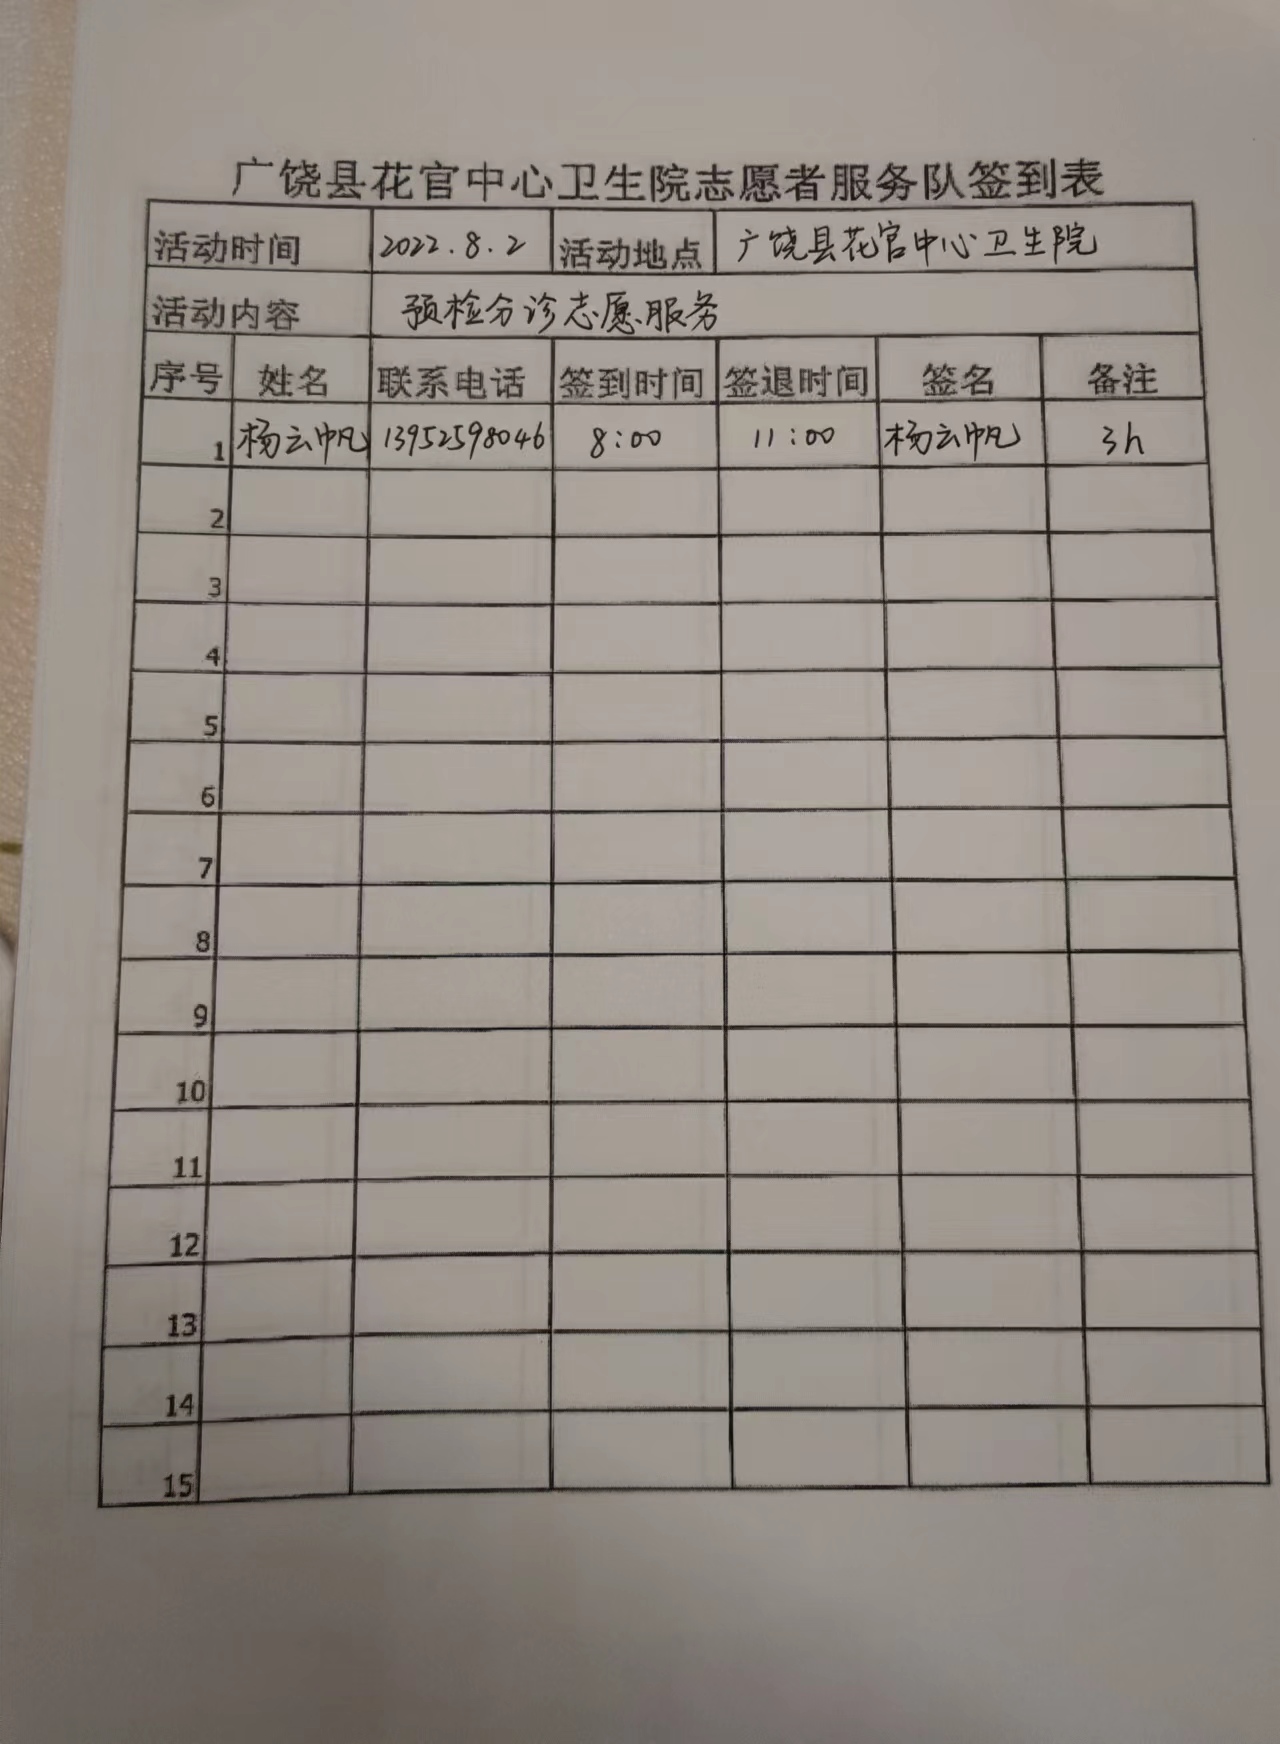 广饶县花官中心卫生院志愿者服务队签到表
活动时间 2022.8.2 活动地点 广饶县花官中心卫生院
活动内容 预检分诊志愿服务
序号 姓名 联系电话 签到时间 签退时间 签名 备注
1 杨云帆 13952598046 8:00 11:00 杨云帆 3h
2
3
4
5
6
7
8
9
10
11
12
13
14
15